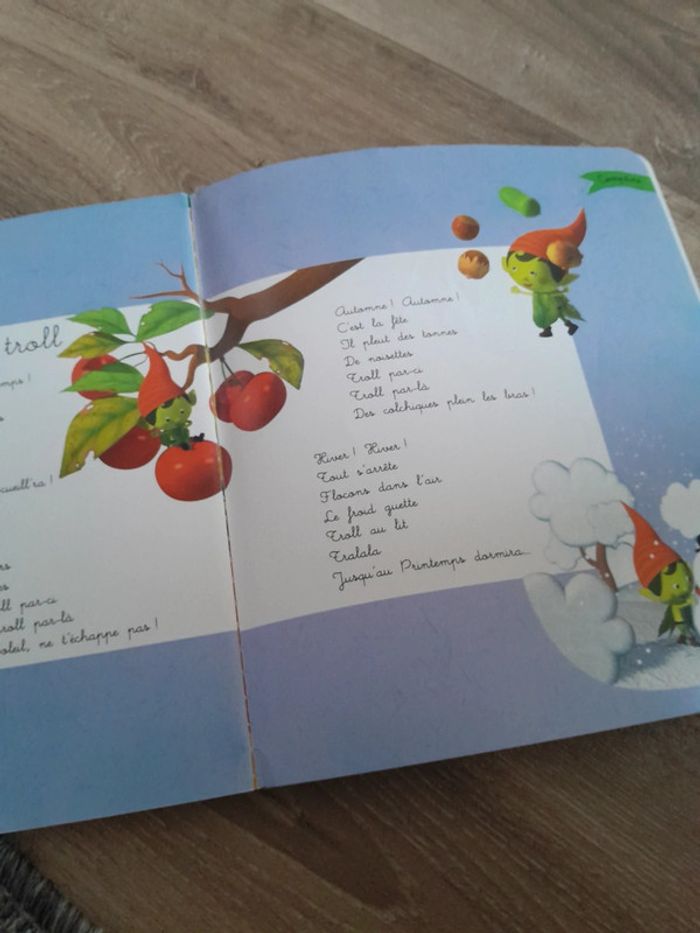 troll
emps !
s
cueill'ra !
rs
es
oll par-ci
roll par-là
oleil, ne t'échappe pas !
Automne ! Automne !
C'est la fête
Il pleut des tonnes
De noisettes
Troll par-ci
Troll par-là
Des colchiques plein les bras !
Hiver ! Hiver !
Tout s'arrête
Flocons dans l'air
Le froid guette
Troll au lit
Tralala
Jusqu'au Printemps dormira...